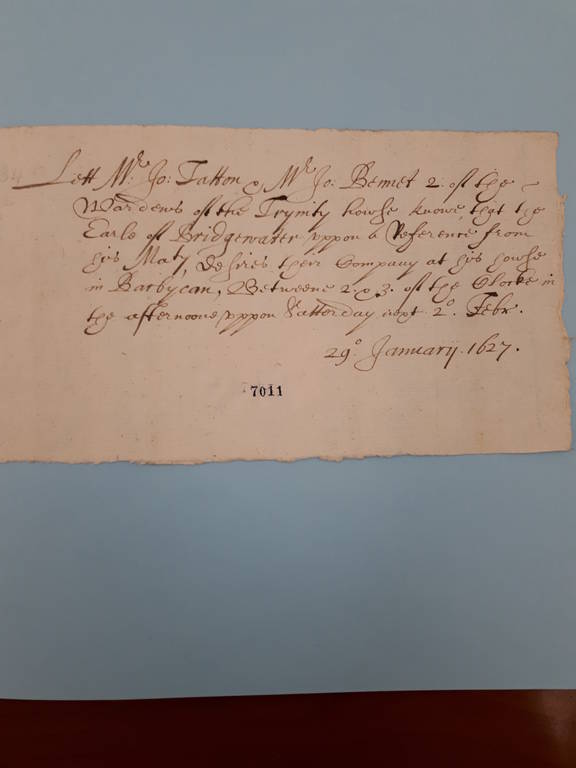 Lett Mr. Jo: Tatton & Mr Jo: Bennet 2. of the
Wardens of the Trynity howse knowe that the
Earle of Bridgewatter vppon a Reference from
his Maty, desires their Company at his howse
in Barbycan, Betweene 2. & 3. of the Clocke in
the afternoone vppon Satterday next 2o. Febr.
29o. January. 1627.
7011